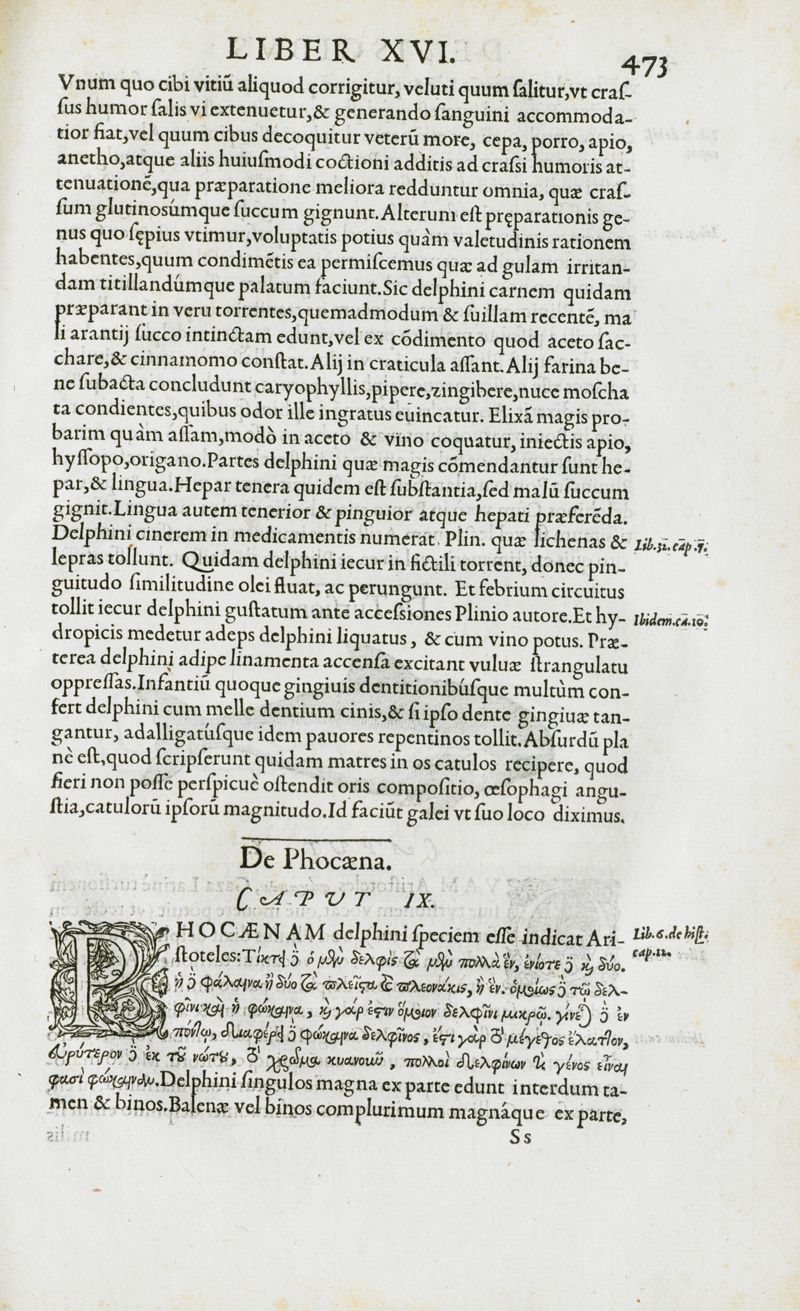 LIBER XVI. 473
Vnum quo cibi vitiū aliquod corrigitur, veluti quum ſalitur,vt craſ-
ſus humor ſalis vi extenuetur,& generando ſanguini accommoda-
tior fiat,vel quum cibus decoquitur veterū more, cepa, porro, apio,
anetho,atque aliis huiuſmodi coctioni additis ad craſsi humoris at-
tenuationē,qua præparatione meliora redduntur omnia, quæ craſ-
ſum glutinosúmque ſuccum gignunt.Alterum eſt pręparationis ge-
nus quo ſępius vtimur,voluptatis potius quàm valetudinis rationem
habentes,quum condimētis ea permiſcemus quæ ad gulam irritan-
dam titillandúmque palatum faciunt.Sic delphini carnem quidam
præparant in veru torrentes,quemadmodum & ſuillam recentē, ma
li arantij ſucco intinctam edunt,vel ex cōdimento quod aceto ſac-
chare,& cinnamomo conſtat.Alij in craticula aſſant.Alij farina be-
ne ſubacta concludunt caryophyllis,pipere,zingibere,nuce moſcha
ta condientes,quibus odor ille ingratus euincatur. Elixā magis pro-
barim quàm aſſam,modò in aceto & vino coquatur, iniectis apio,
hyſſopo,origano.Partes delphini quæ magis cōmendantur ſunt he-
par,& lingua.Hepar tenera quidem eſt ſubſtantia,ſed malū ſuccum
gignit.Lingua autem tenerior & pinguior atque hepati præferēda.
Delphini cinerem in medicamentis numerat Plin. quæ lichenas & Lib.32.cap.7.
lepras tollunt. Quidam delphini iecur in fictili torrent, donec pin-
guitudo ſimilitudine olei fluat, ac perungunt. Et febrium circuitus
tollit iecur delphini guſtatum ante acceſsiones Plinio autore.Et hy- Ibidem.ca.10.
dropicis medetur adeps delphini liquatus, & cum vino potus. Præ-
terea delphini adipe linamenta accenſa excitant vuluæ ſtrangulatu
oppreſſas.Infantiū quoque gingiuis dentitionibúſque multùm con-
fert delphini cum melle dentium cinis,& ſi ipſo dente gingiuæ tan-
gantur, adalligatúſque idem pauores repentinos tollit.Abſurdū pla
nè eſt,quod ſcripſerunt quidam matres in os catulos recipere, quod
fieri non poſſe perſpicuè oſtendit oris compoſitio, œſophagi angu-
ſtia,catulorū ipſorū magnitudo.Id faciūt galei vt ſuo loco diximus.
De Phocæna.
CAPVT IX.
PHOCÆNAM delphini ſpeciem eſſe indicat Ari- Lib.6.de hiſt.
ſtoteles:Τίκτει δὲ ὁ μὲν δελφὶς τὰ μὲν πολλὰ ἓν, ἐνίοτε δὲ καὶ δύο. cap.12.
ἡ δὲ φάλαινα ἢ δύο τὰ πλεῖστα καὶ πλεονάκις, ἢ ἕν. ὁμοίως δὲ τῷ δελ-
φῖνι καὶ ἡ φώκαινα, καὶ γάρ ἐστιν ὅμοιον δελφῖνι μικρῷ. γίνεται δὲ ἐν
πόντῳ, διαφέρει δὲ φώκαινα δελφῖνος, ἔστι γὰρ τὸ μέγεθος ἔλαττον,
εὐρύτερον δὲ ἐκ τοῦ νώτου, τὸ χρῶμα κυανοῦν, πολλοὶ δελφίνων τι γένος εἶναι
φασὶ φώκαιναν.Delphini ſingulos magna ex parte edunt interdum ta-
men & binos.Balenæ vel binos complurimum magnáque ex parte,
Ss